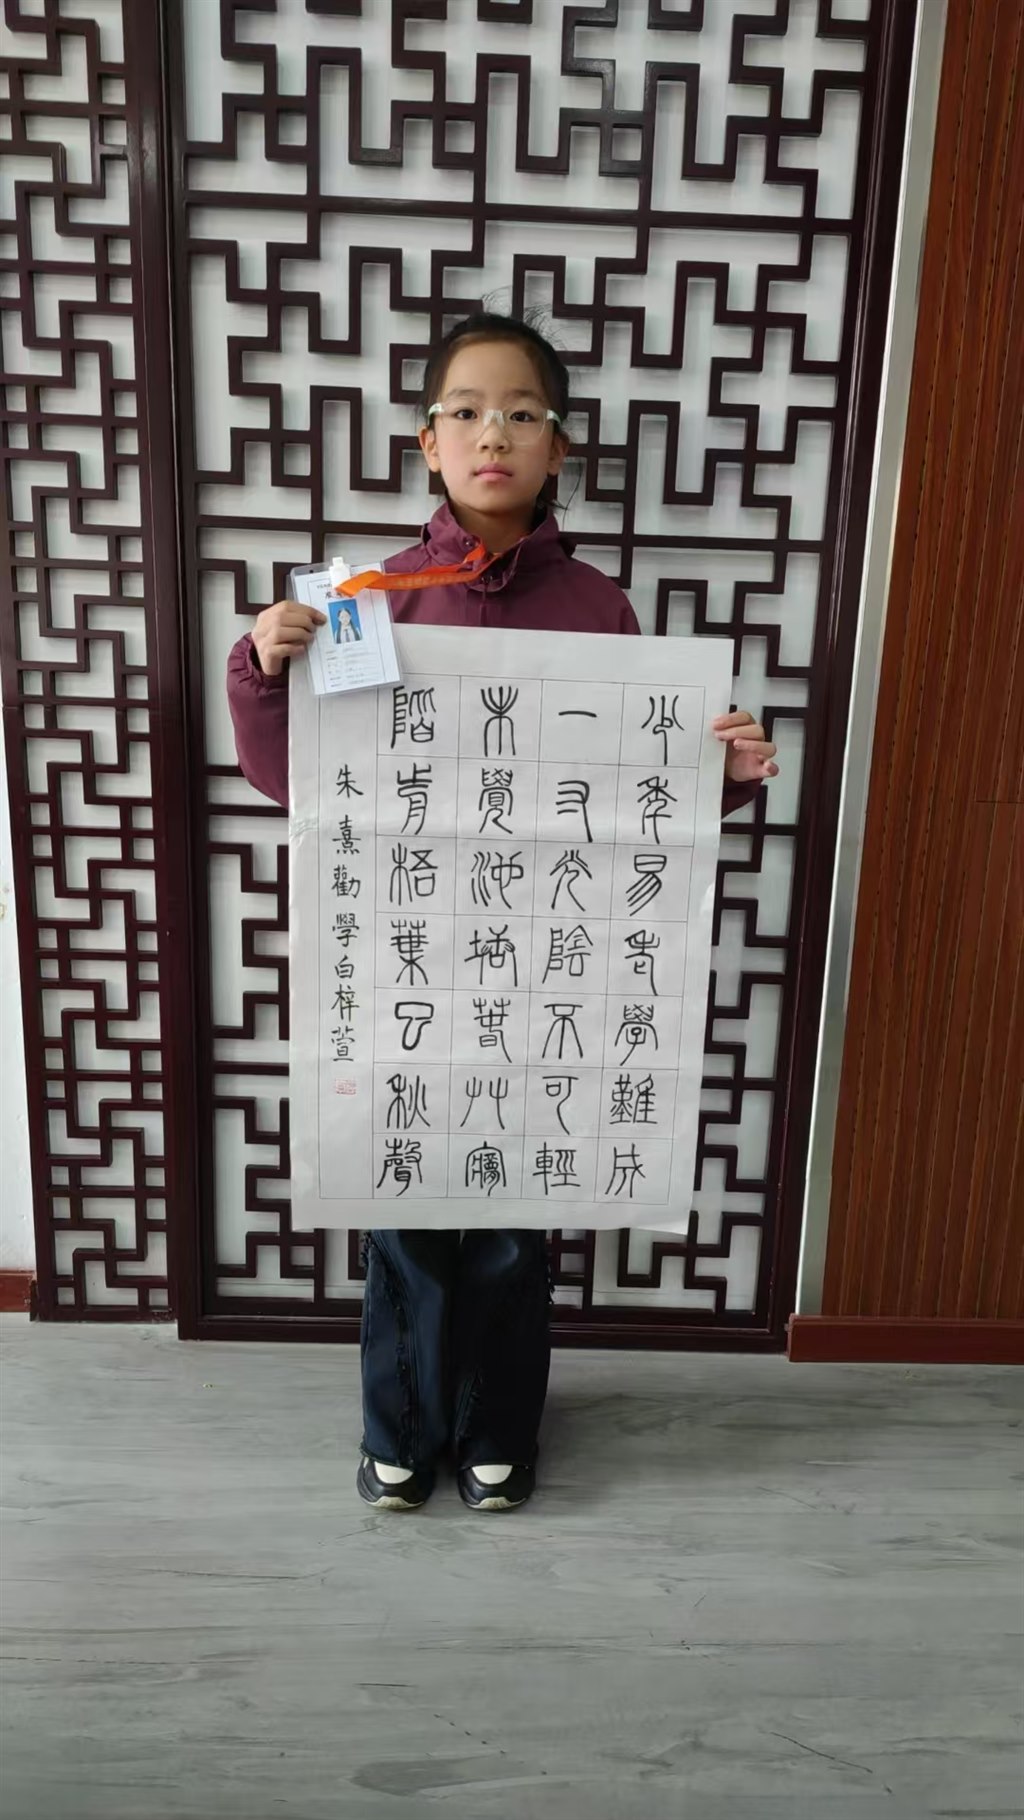 少年易老學難成
一寸光陰不可輕
未覺池塘春艸夢
階前梧葉已秋聲
朱熹勸學白梓萱